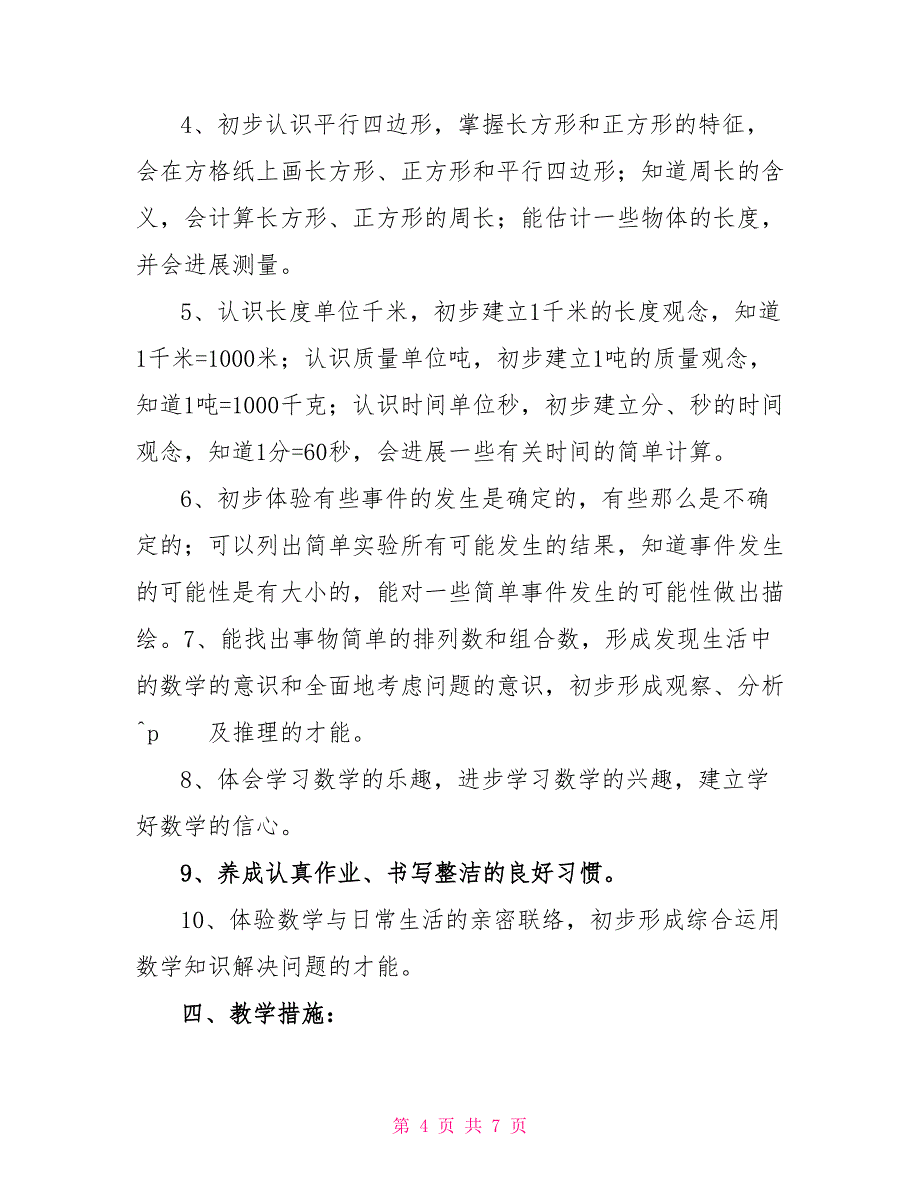 4、初步认识平行四边形，掌握长方形和正方形的特征，
会在方格纸上画长方形、正方形和平行四边形；知道周长的含
义，会计算长方形、正方形的周长；能估计一些物体的长度，
并会进展测量。
5、认识长度单位千米，初步建立1千米的长度观念，知道
1千米=1000米；认识质量单位吨，初步建立1吨的质量观念，
知道1吨=1000千克；认识时间单位秒，初步建立分、秒的时间
观念，知道1分=60秒，会进展一些有关时间的简单计算。
6、初步体验有些事件的发生是确定的，有些那么是不确
定的；可以列出简单实验所有可能发生的结果，知道事件发生
的可能性是有大小的，能对一些简单事件发生的可能性做出描
绘。7、能找出事物简单的排列数和组合数，形成发现生活中
的数学的意识和全面地考虑问题的意识，初步形成观察、分析
^p 及推理的才能。
8、体会学习数学的乐趣，进步学习数学的兴趣，建立学
好数学的信心。
9、养成认真作业、书写整洁的良好习惯。
10、体验数学与日常生活的亲密联络，初步形成综合运用
数学知识解决问题的才能。
四、教学措施：
第 4 页 共 7 页